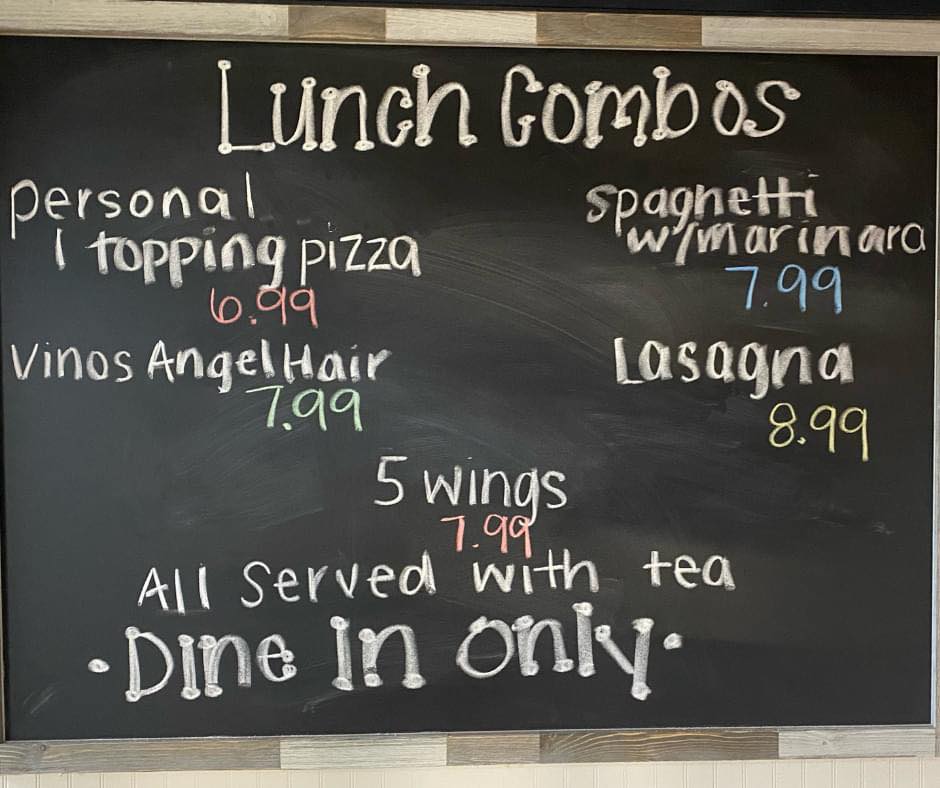 Lunch Combos
personal
1 topping pizza
6.99
Vinos Angel Hair
7.99
spaghetti
w/marinara
7.99
Lasagna
8.99
5 wings
7.99
All served with tea
•Dine in only•